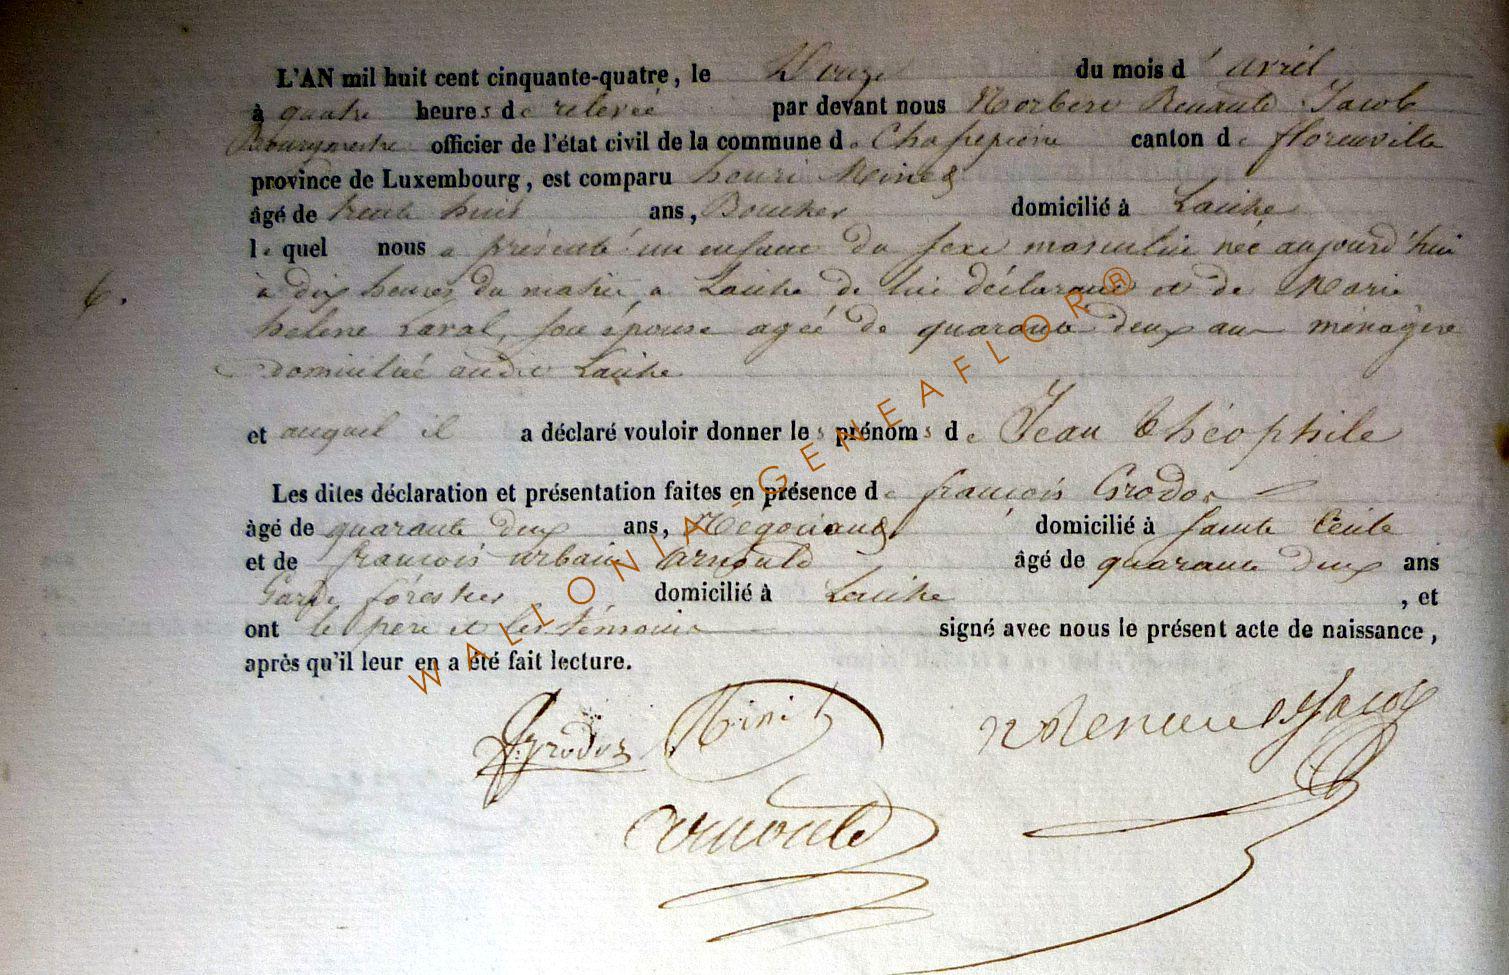 L'AN mil huit cent cinquante-quatre, le Douze du mois d'avril
à quatre heures de relevée par devant nous Norbert Renauld Jacob
Bourgmestre officier de l'état civil de la commune de Chassepierre canton de florenville
province de Luxembourg, est comparu henri
âgé de trente huit ans, Boucher domicilié à Laiche
lequel nous a présenté un enfant du sexe masculin né aujourd'hui
à dix heures du matin, a Laiche de lui déclarant et de Marie
helene Laval, son épouse agée de quarante deux ans ménagère
domiciliée audit Laiche
6.
et auquel il a déclaré vouloir donner les prénoms de Jean Théophile
Les dites déclaration et présentation faites en présence de françois Grodos
âgé de quarante deux ans, Negociant domicilié à sainte Cécile
et de françois urbain arnould âgé de quarante deux ans
Garde forestier domicilié à Laiche, et
ont le père et les témoins signé avec nous le présent acte de naissance,
après qu'il leur en a été fait lecture.
WALLONIA-GENEAFLOR®
Grodos
arnould
Jacob